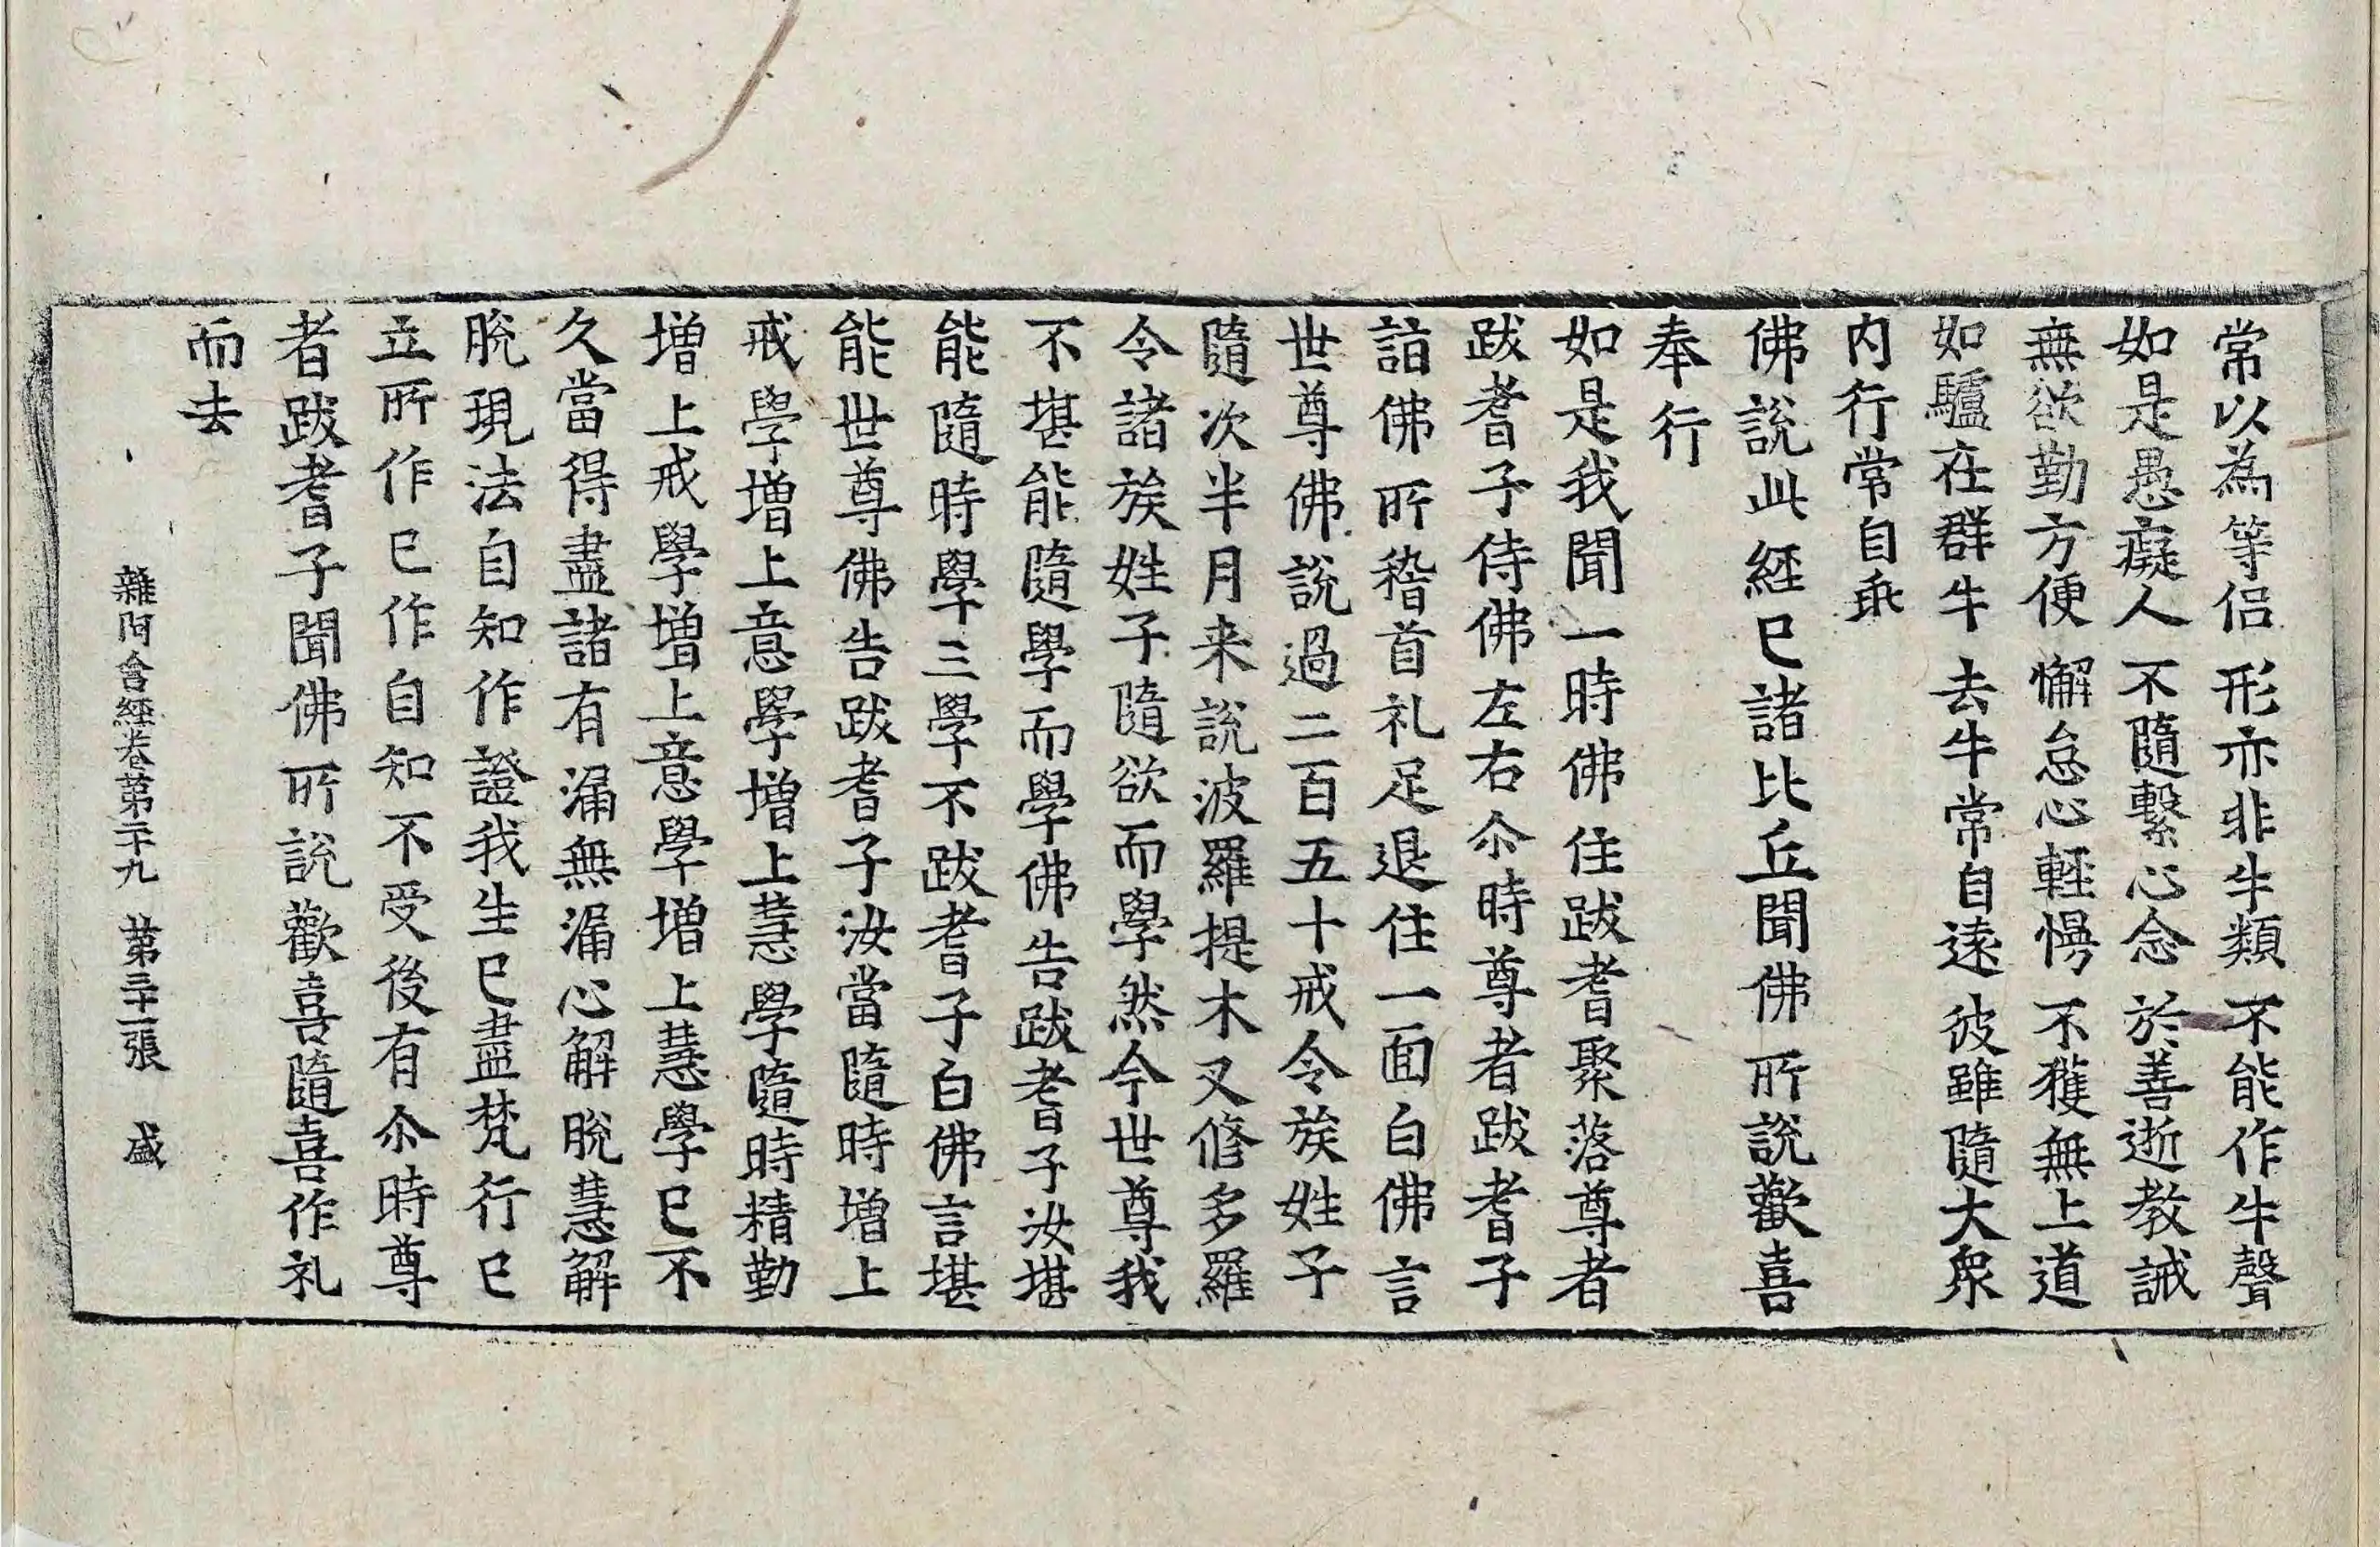 常以為等侶 形亦非牛類 不能作牛聲
如是愚癡人 不隨繫心念 於善逝教誡
無欲勤方便 懈怠心輕慢 不獲無上道
如驢在群牛 去牛常自遠 彼雖隨大衆
内行常自乖
佛說此經已諸比丘聞佛所說歡喜
奉行
如是我聞一時佛住跋耆聚落尊者
跋耆子侍佛左右尒時尊者跋耆子
詣佛所稽首礼足退住一面白佛言
世尊佛說過二百五十戒令族姓子
隨次半月来說波羅提木叉修多羅
令諸族姓子隨欲而學然今世尊我
不堪能隨學而學佛告跋耆子汝堪
能隨時學三學不跋耆子白佛言堪
能世尊佛告跋耆子汝當隨時增上
戒學增上意學增上慧學隨時精勤
增上戒學增上意學增上慧學已不
久當得盡諸有漏無漏心解脫慧解
脫現法自知作證我生已盡梵行已
立所作已作自知不受後有尒時尊
者跋耆子聞佛所說歡喜隨喜作礼
而去
雜阿含經卷第二十九 第三十一張 盛